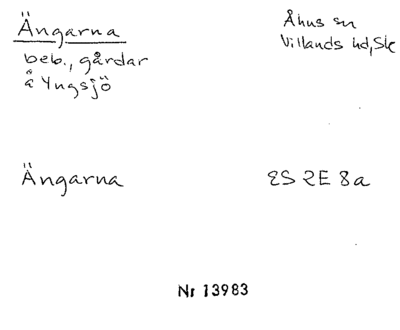 Ängarna
beb., gårdar
å Yngsjö
Åhus sn
Villands hd, Sk
Ängarna
ES 2E 8a
Nr 13983